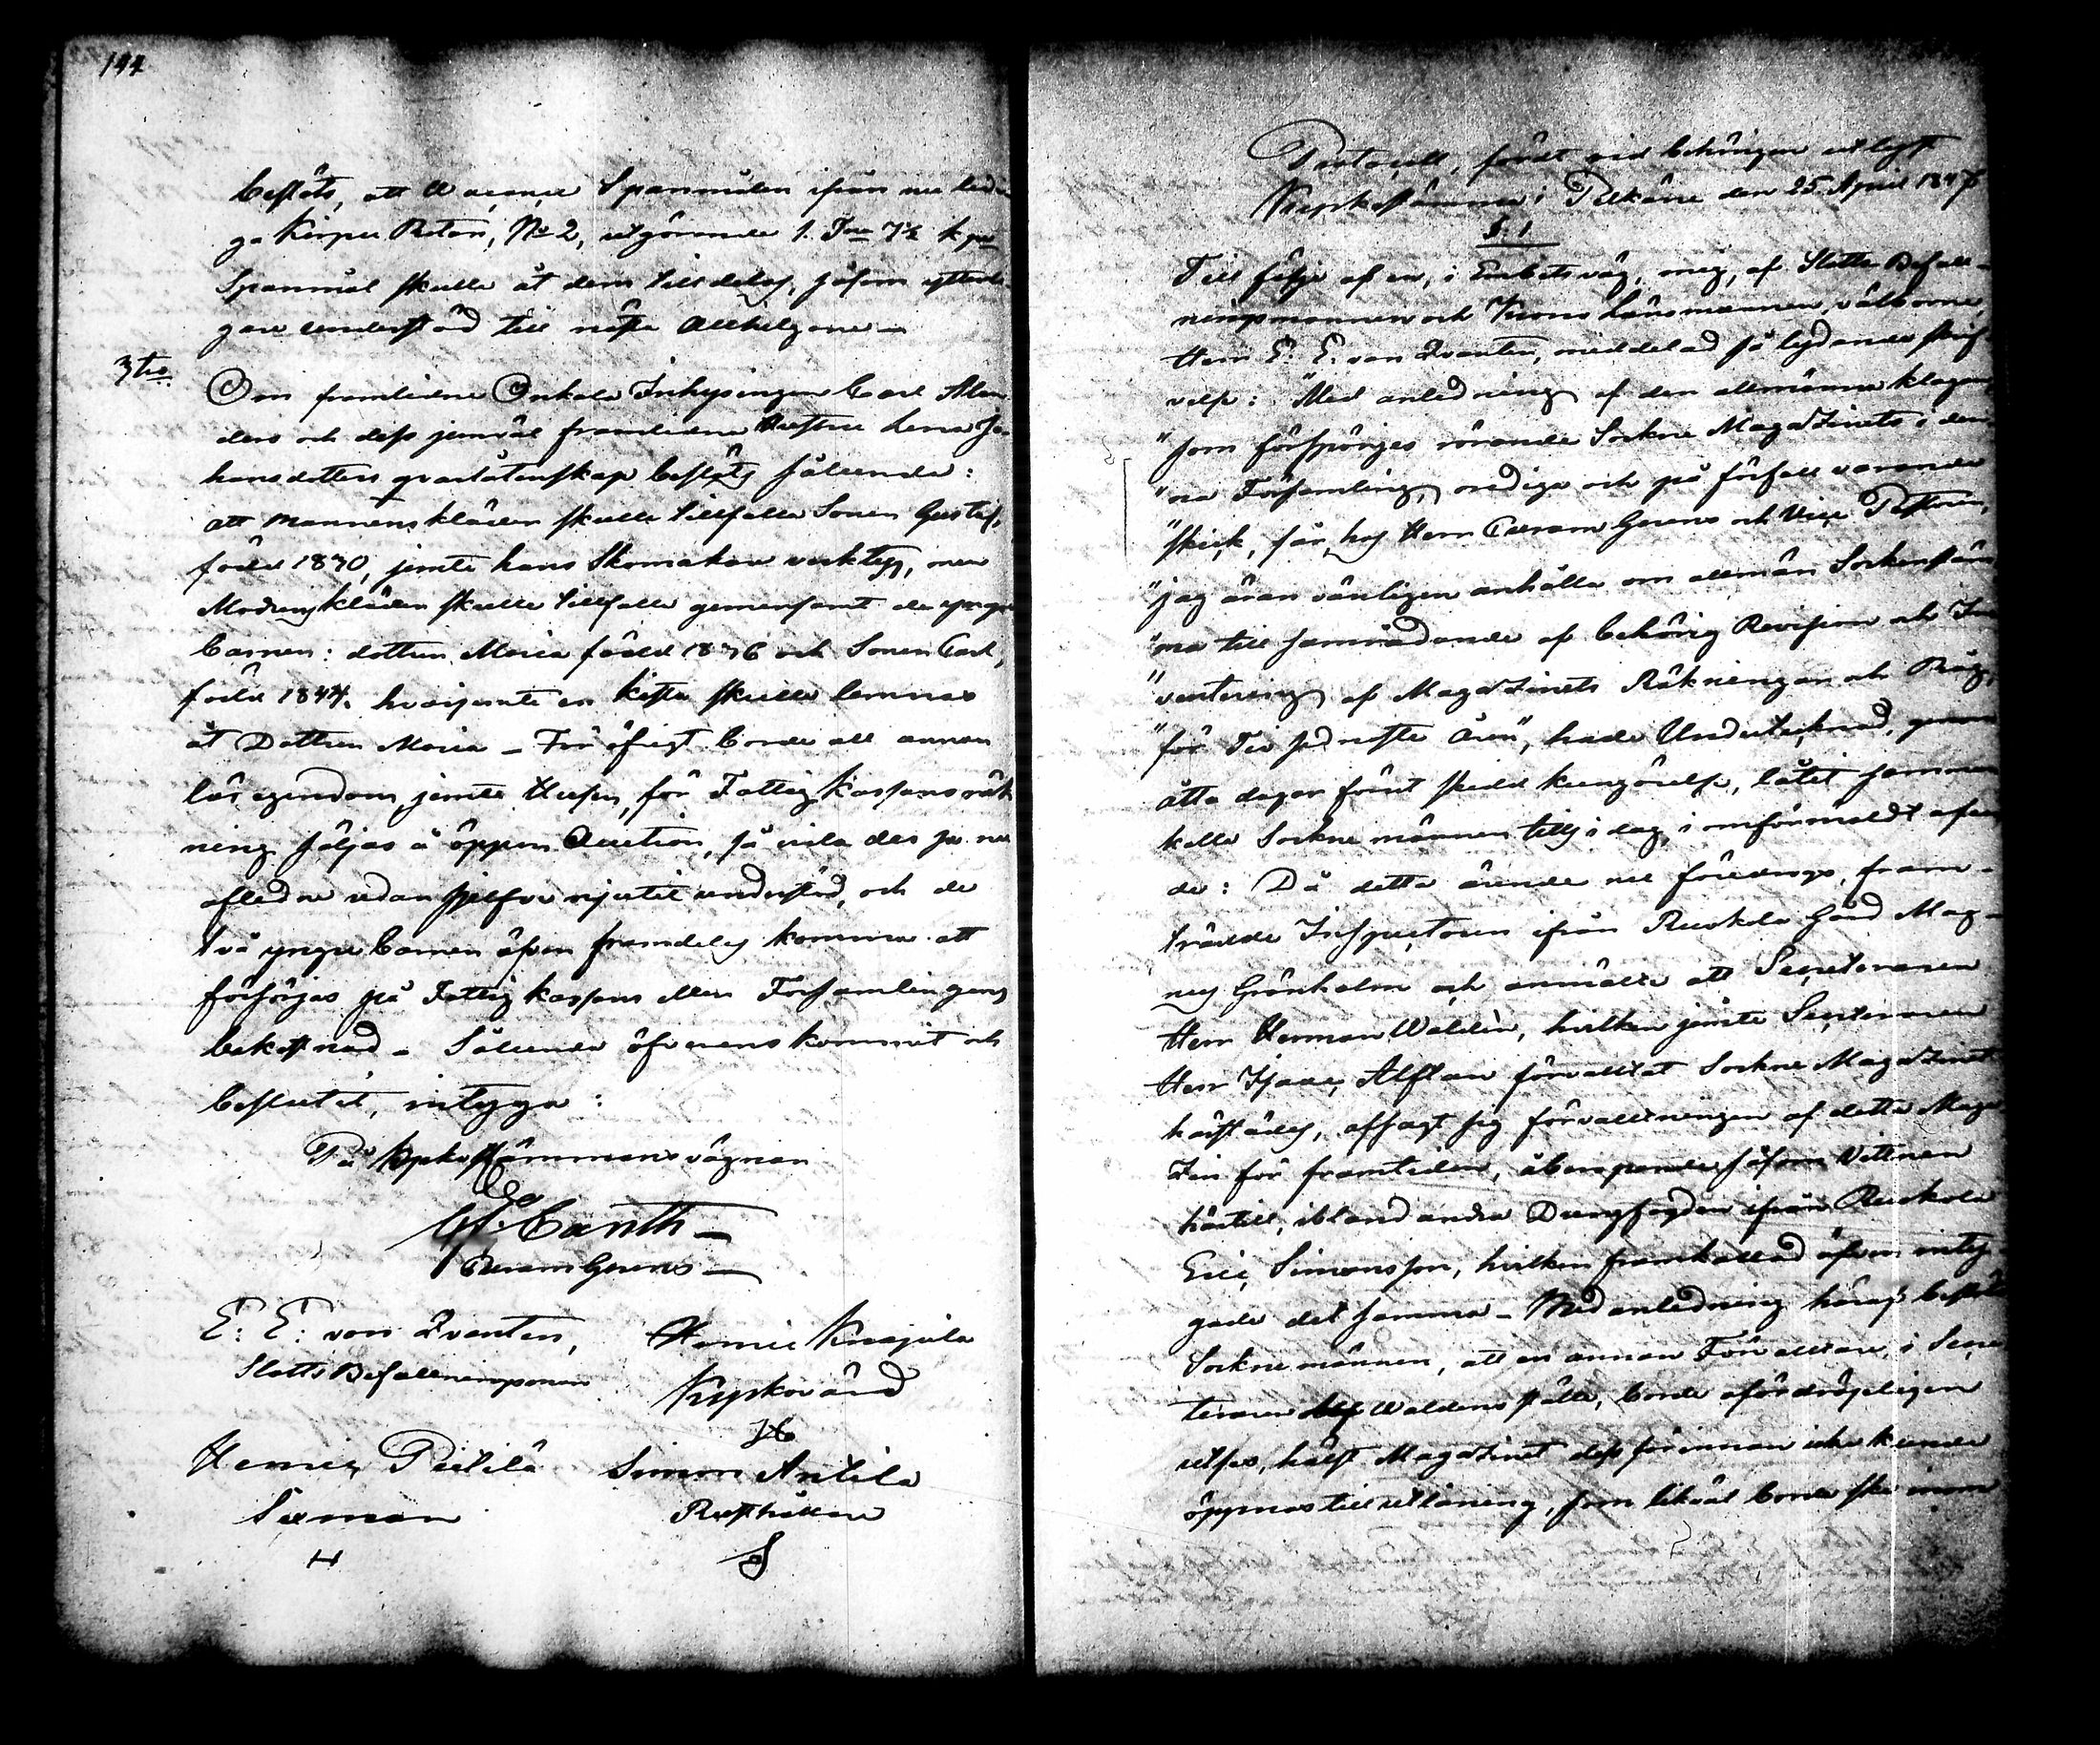 144
beslöts, att Spanmålen ifrån nu ledi
ga Kirpu Roten, No 2, utgörande 1. T:na 7½ k:pr
Spanmål skulle åt dem tilldelas, såsom ytterli
gare understöd till nästa Allhelgona —
3tio
Om framlidne Onkala Inhysingen Carl Alan
ders och dess jemväl framlidne Hustru Lena Jo
hansdotters qvarlåtenskap beslöts sålunda:
att Mannens kläder skulle tillfalla Sonen Gustaf,
född 1830, jemte hans Skomakare verktyg, men
Modrens kläder skulle tillfalla gemensamt de yngre
barnen: dottren Maria född 1836 och Sonen Carl,
född 1844. hvarjemte en kista skulle lemnas
åt Dottren Maria — För öfrigt borde all annan
lös egendom jemte Husen, för Fattig Kassans räk
ning säljas å öppen Auction, så vida des ju nu
afledne redan sjelfve njutit understöd, och de
två yngre barnen äfven framdeles komma att
försörjas på Fattig kassans eller Församlingens
bekostnad — Sålunda öfverenskommit och
beslutit, intyga:
På Kyrkostämmans vägnar
G. Canth —
Curam Gerens —
E: E: von Qvanten,
Slotts Befallningsman
Henric Knajula
Kyrkovärd
Henric Pietilä
Sexman
Simon Antila
Rusthållare
Protocoll, fördt vid behörigen utlyst
Kyrkostämma i Pelkäne den 25 April 1847
§. 1.
Till följe af en, i Embetsväg, mig, af Slotts Befall-
ningsmannen och Krono Länsmannen, välborne
Herr E: E: von Qvanten, meddelad så lydande skrif
velse: "Med anledning af den allmänna klagan,
"som förspörjes rörande Sockne Magazinets i den
"na Församling, orediga och på förfall varande
"skick, får hos Herr Curam Gerens och Vice Pastoren,
"jag äran vänligen anhålla om allmän Sockenstäm
"ma till samrådande af behörig Revision och In
"ventering af Magazinets Räkningar och
"för Tio sednaste Åren", hade Undertecknad, genom
åtta dagar förut skedd kungörelse, låtit samman
kalla Sockne männen tills i dag, i omförmäldt afse
de: Då detta ärende nu föredrogs, fram-
trädde Inspectoren ifrån Ruokola Gård Mag-
nus Grönholm och anmälte att Secreteraren
Herr Herman Waldén, hvilken jemte Sexterman
Herr Isaac Alftan förvaltat Sockne Magazinet
härstädes, afsagt sig förvaltningen af detta Maga
zin för framtiden, åberopande såsom Vittnen
härtill, ibland andra Dryngfogden ifrån Ruokola
Eric Simonsson, hvilken framkallad äfven inty
gade det samma — Med anledning häraf beslöto
Sockne männen, att en annan Förvaltare, i Secre
teraren Waldens ställe, borde ofördröjeligen
utses, hälst Magazinet dess förinnan icke kunde
öppnas till utlåning, som likväl borde ske inom